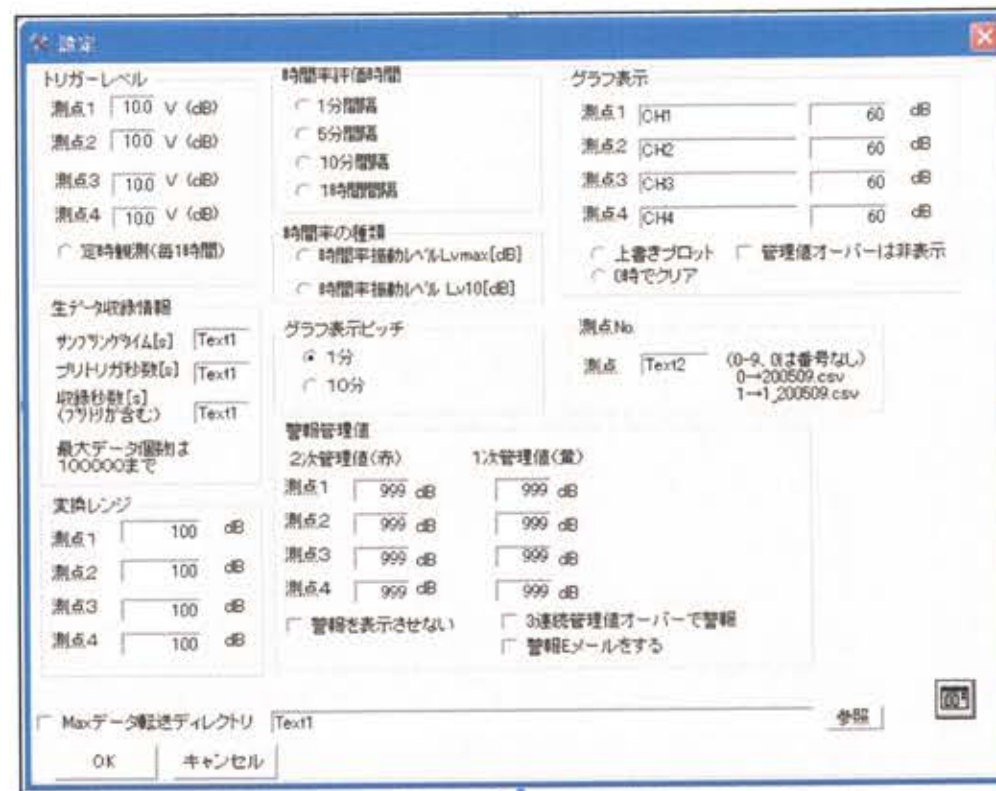 設定
トリガーレベル
測点1 10.0 V (dB)
測点2 10.0 V (dB)
測点3 10.0 V (dB)
測点4 10.0 V (dB)
定時観測(毎1時間)
生データ収録情報
サンプリングタイム[s] Text1
プリトリガ秒数[s] Text1
収録秒数[s]
(プリトリガ含む) Text1
最大データ個数は
100000まで
変換レンジ
測点1 100 dB
測点2 100 dB
測点3 100 dB
測点4 100 dB
時間率評価時間
1分間隔
5分間隔
10分間隔
1時間間隔
時間率の種類
時間率振動レベルLvmax[dB]
時間率振動レベル Lv10[dB]
グラフ表示ピッチ
1分
10分
警報管理値
2次管理値(赤) 1次管理値(黄)
測点1 999 dB 999 dB
測点2 999 dB 999 dB
測点3 999 dB 999 dB
測点4 999 dB 999 dB
警報を表示させない
3連続管理値オーバーで警報
警報Eメールをする
グラフ表示
測点1 CH1 60 dB
測点2 CH2 60 dB
測点3 CH3 60 dB
測点4 CH4 60 dB
上書きプロット 管理値オーバーは非表示
0時でクリア
測点No.
測点 Text2 (0-9、0は番号なし)
0→200509.csv
1→1_200509.csv
Maxデータ転送ディレクトリ Text1 参照
OK キャンセル